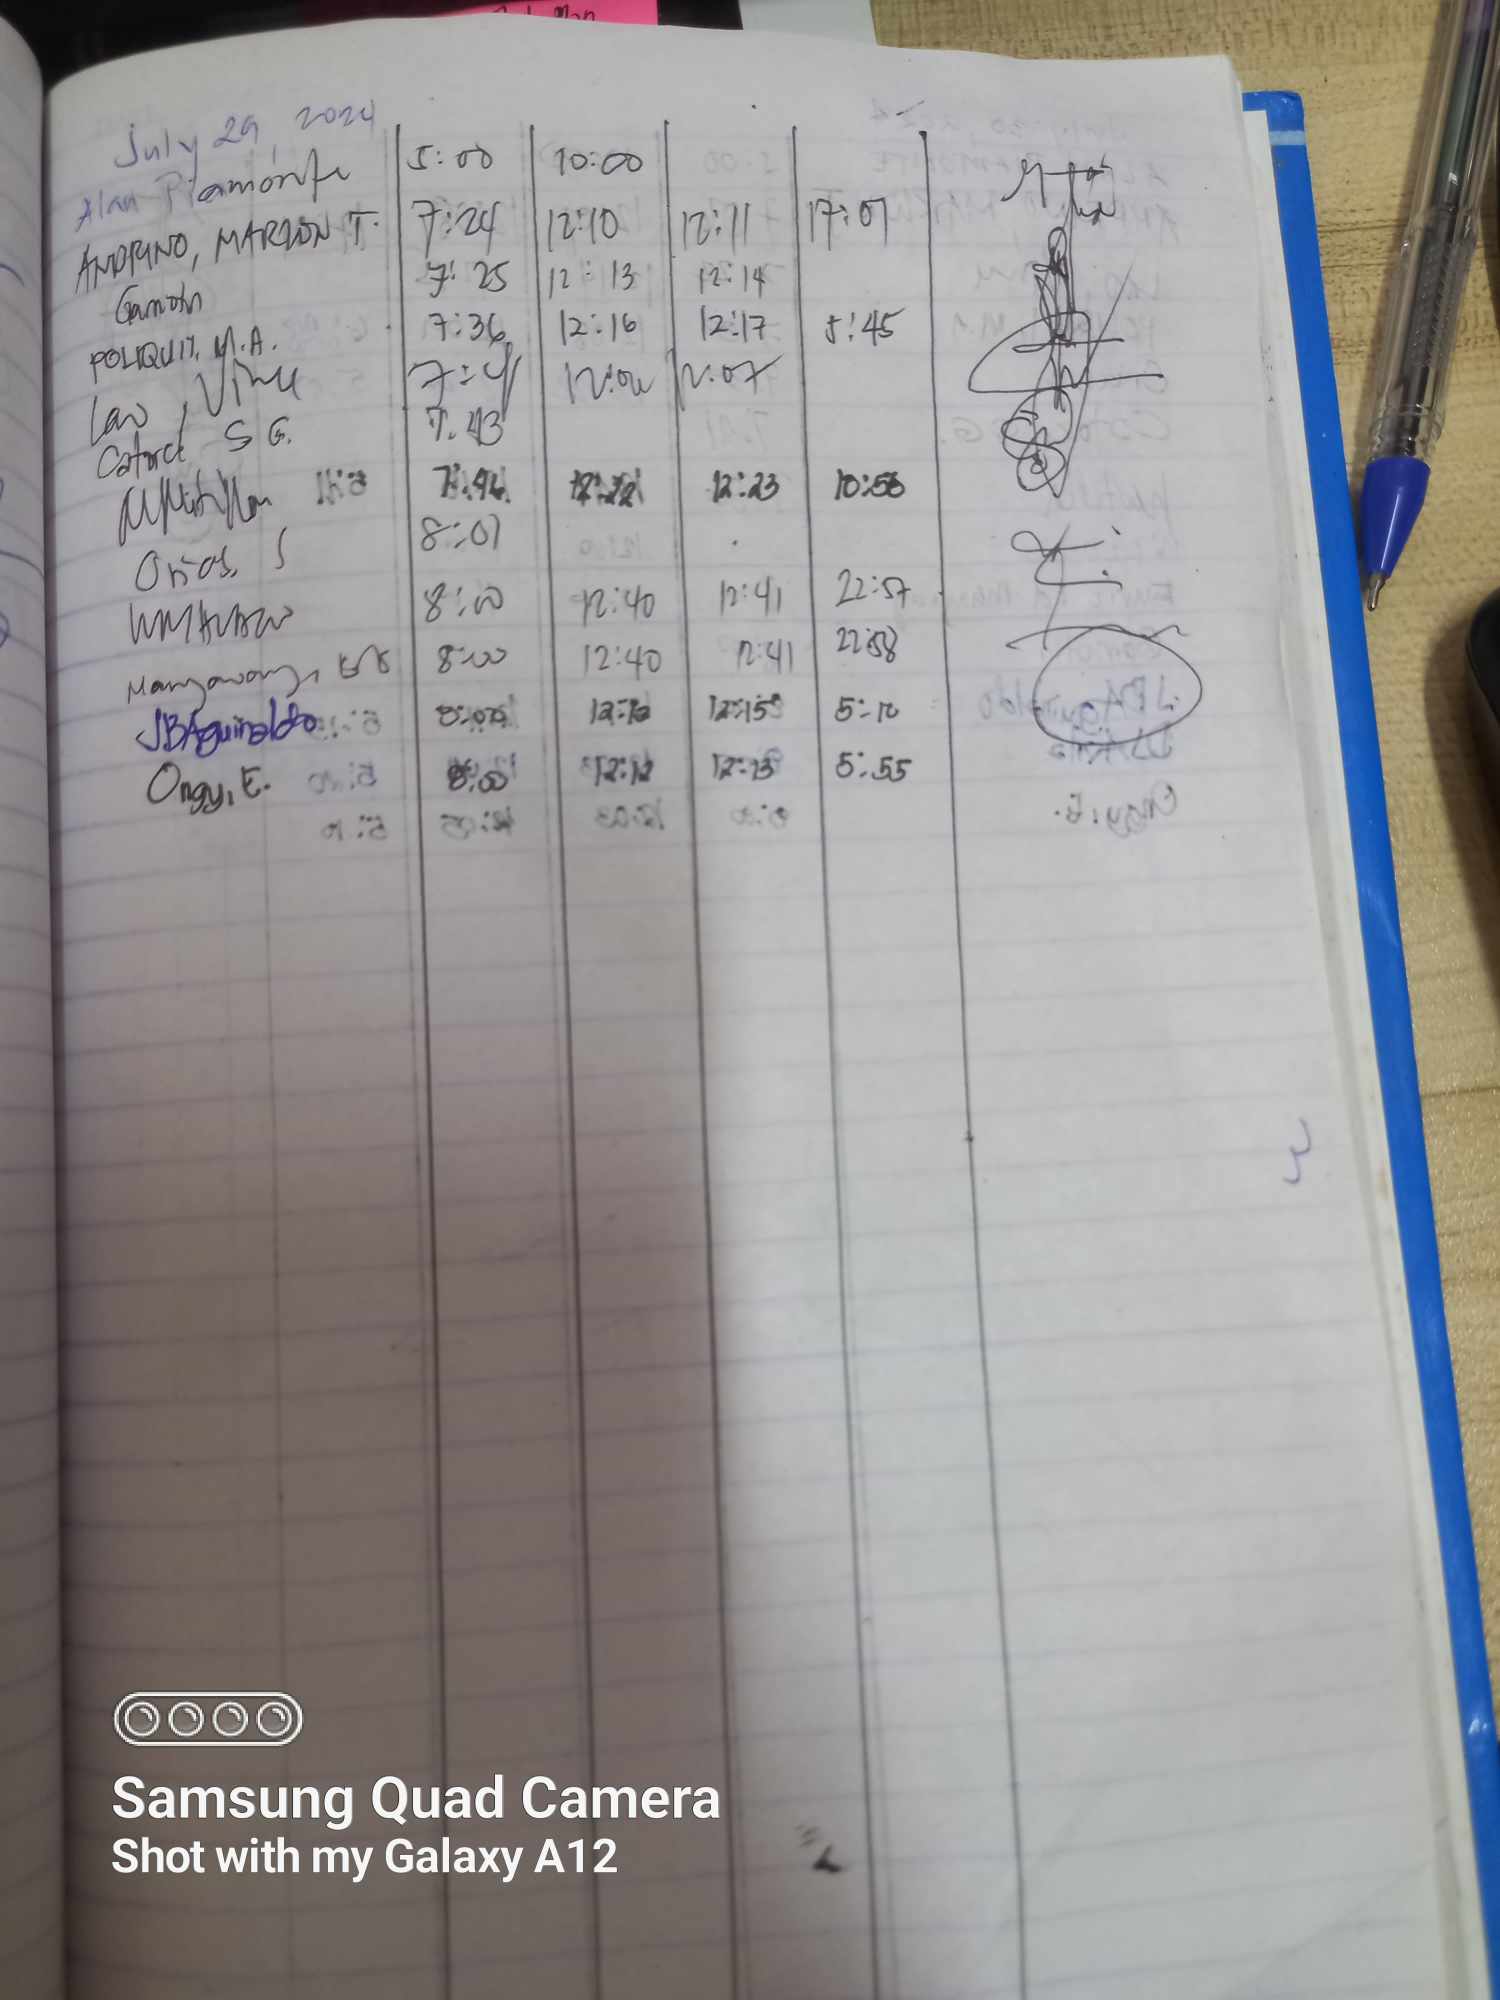 July 29, 2024
Alan Piamonte 5:00 10:00
ANDRINO, MARLON T. 7:24 12:10 12:11 17:01
7:25 12:13 12:14
POLIQUIT, M.A. 7:36 12:16 12:17 5:45
Lao, Vince 7:41 12:06 12:07
S G. 7:43
7:46 12:22 12:23 10:56
Orios, J 8:01
8:00 12:40 12:41 22:57
8:00 12:40 12:41 22:58
JBAguinaldo 8:00 12:12 12:15 5:10
Ongy, E. 8:00 12:12 12:13 5:55
Samsung Quad Camera
Shot with my Galaxy A12